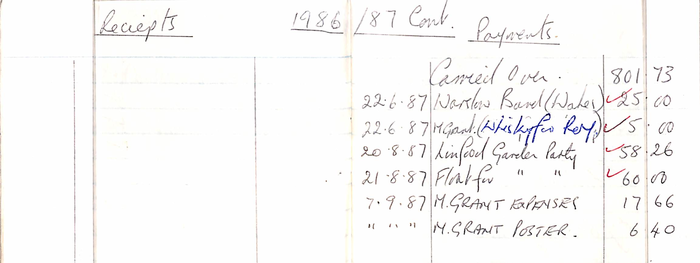 Reciepts 1986/87 Cont. Payments.
Carried Over. 801 73
22·6·87 Warslow Band ( ✓25·00
22·6·87 M Grant. (Whisky for ✓5·00
20·8·87 Linfood Garden Party ✓58·26
21·8·87 Float for " " ✓60 00
7·9·87 M. GRANT EXPENSES 17 66
" " " M. GRANT POSTER. 6 40